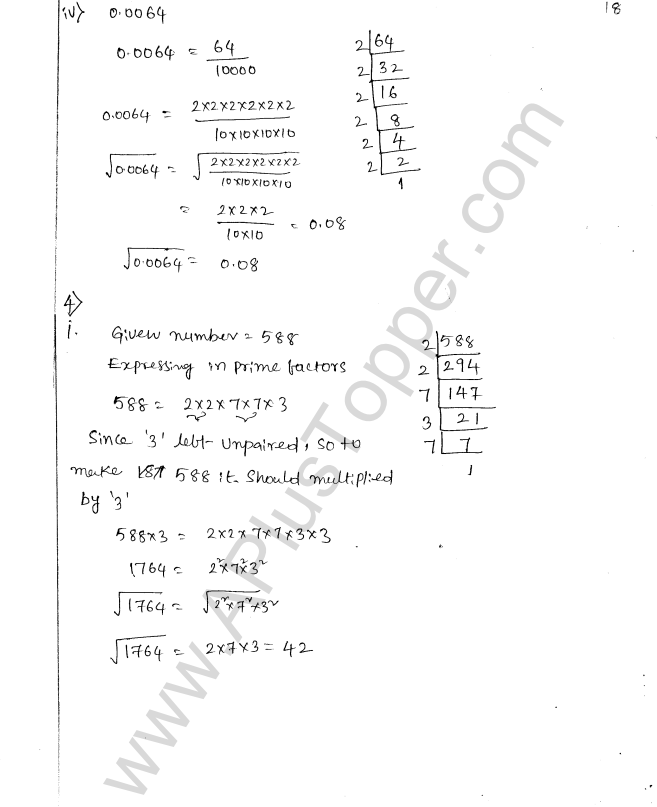 18
iv) 0.0064
0.0064 = 64/10000
2|64
2|32
2|16
2|8
2|4
2|2
1
0.0064 = 2×2×2×2×2×2/10×10×10×10
√0.0064 = √2×2×2×2×2×2/10×10×10×10
= 2×2×2/10×10 = 0.08
√0.0064 = 0.08
4)
i. Given number = 588
Expressing in prime factors
588 = 2×2×7×7×3
2|588
2|294
7|147
3|21
7|7
1
Since '3' left unpaired, so to
make 588 it should multiplied
by '3'
588×3 = 2×2×7×7×3×3
1764 = 2²×7²×3²
√1764 = √2²×7²×3²
√1764 = 2×7×3 = 42
www.APlusTopper.com